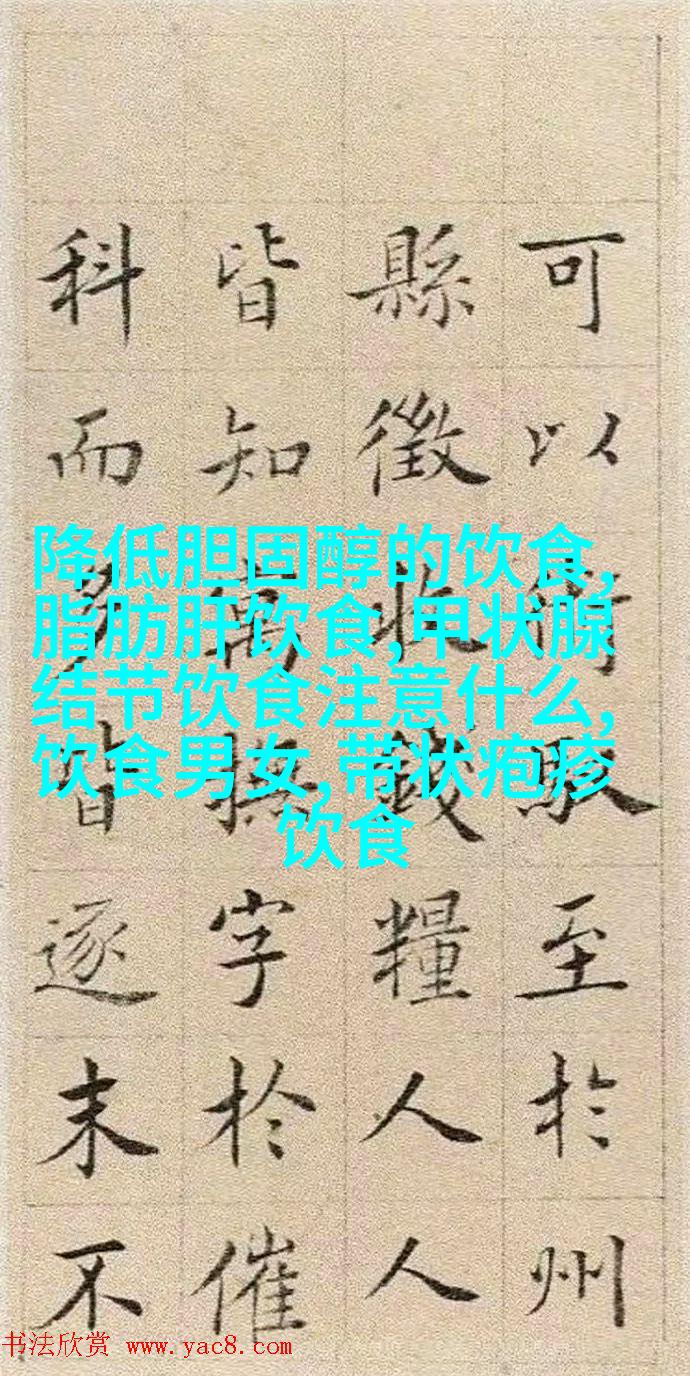 可以至於州
縣徵收錢糧人人
皆知寓撫字於催
科而皆逐末不
降低胆固醇的饮食,
脂肪肝饮食,甲状腺
结节饮食注意什么,
饮食男女,带状疱疹
饮食
书法欣赏 www.yac8.com